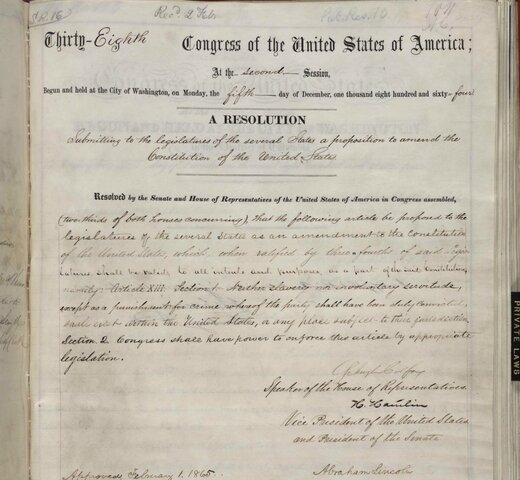 S.R. 16
Recd. 2 Feb
Pub. Res. 10
Thirty-Eighth Congress of the United States of America;
At the second Session,
Begun and held at the City of Washington, on Monday, the fifth day of December, one thousand eight hundred and sixty-four
A RESOLUTION
Submitting to the legislatures of the several States a proposition to amend the
Constitution of the United States
Resolved by the Senate and House of Representatives of the United States of America in Congress assembled,
(two-thirds of both houses concurring), that the following article be proposed to the
legislatures of the several States as an amendment to the Constitution
of the United States, which, when ratified by three-fourths of said Legis-
latures shall be valid, to all intents and purposes, as a part of the said Constitution,
namely: Article XIII. Section 1. Neither slavery nor involuntary servitude,
except as a punishment for crime whereof the party shall have been duly convicted,
shall exist within the United States, or any place subject to their jurisdiction.
Section 2. Congress shall have power to enforce this article by appropriate
legislation.
Schuyler Colfax
Speaker of the House of Representatives.
H. Hamlin
Vice President of the United States
and President of the Senate
Approved, February 1. 1865.
Abraham Lincoln
PRIVATE LAWS